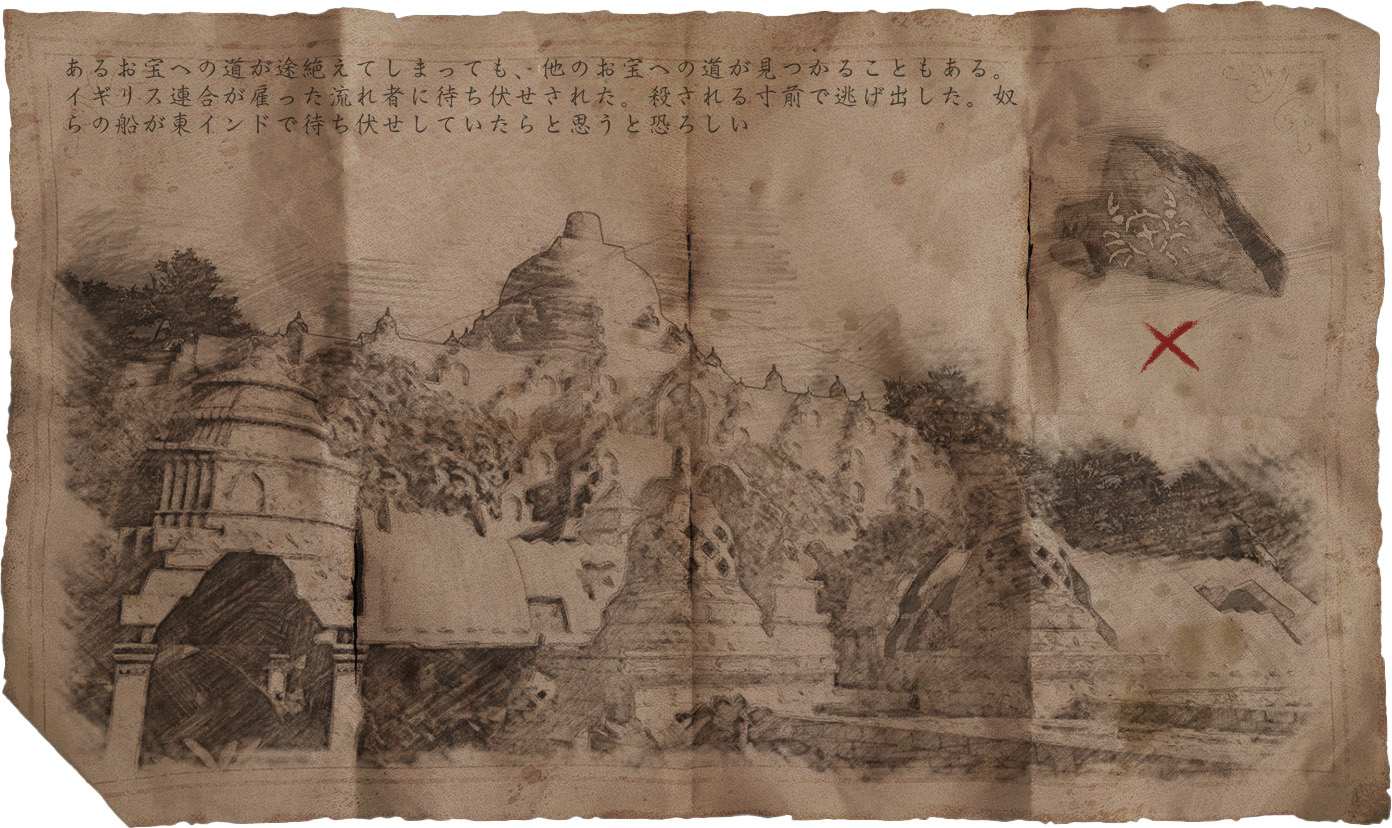 あるお宝への道が途絶えてしまっても、他のお宝への道が見つかることもある。
イギリス連合が雇った流れ者に待ち伏せされた。殺される寸前で逃げ出した。奴
らの船が東インドで待ち伏せしていたらと思うと恐ろしい